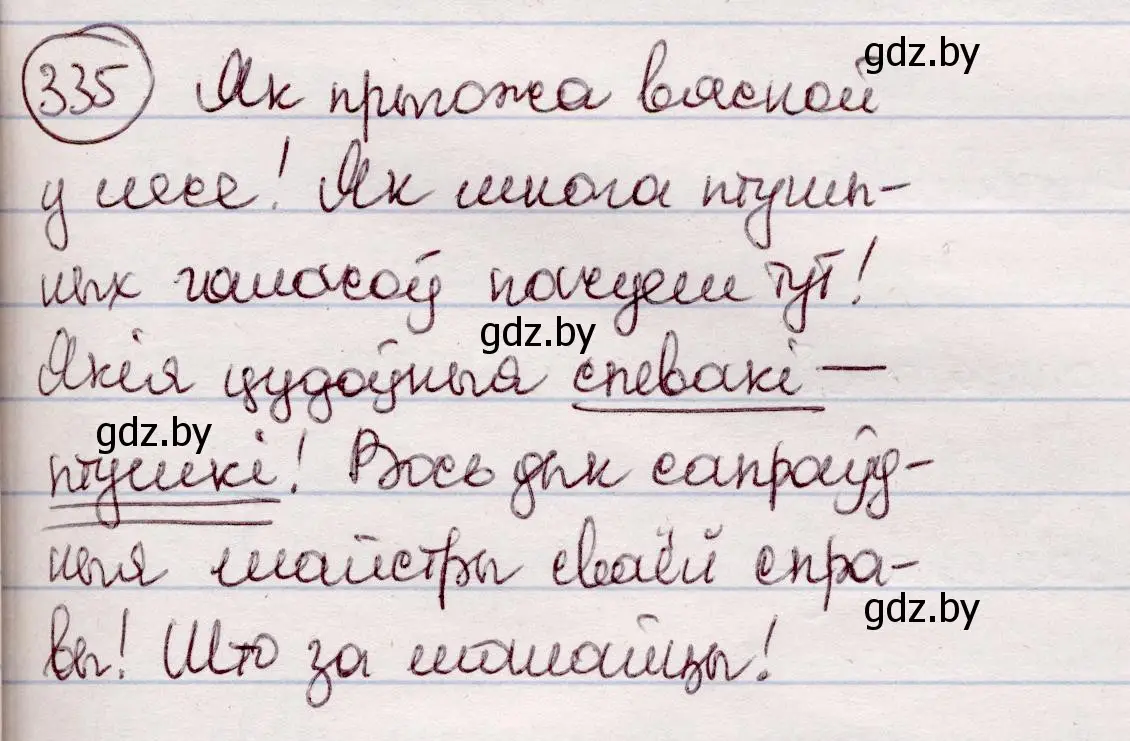 335 Як прыгожа вясной
у лесе! Як многа птушы-
ных галасоў пачуем тут!
Якія цудоўныя спевакі —
птушкі! Вось дык сапраўд-
ныя майстры сваёй спра-
вы! Што за малайцы!
gdz.by
gdz.by
gdz.by
gdz.by